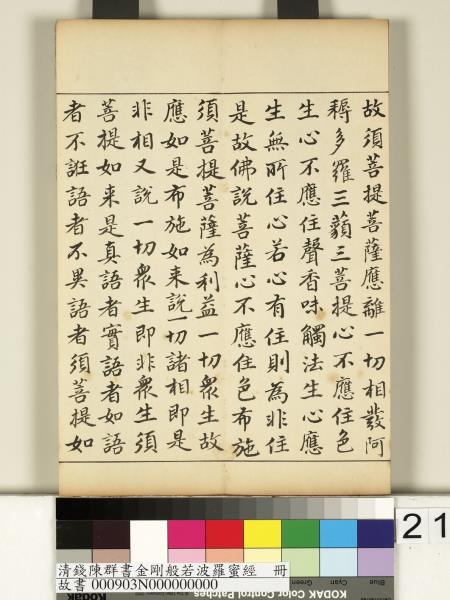 故須菩提菩薩應離一切相發阿
耨多羅三藐三菩提心不應住色
生心不應住聲香味觸法生心應
生無所住心若心有住則為非住
是故佛說菩薩心不應住色布施
須菩提菩薩為利益一切眾生故
應如是布施如来說一切諸相即是
非相又說一切眾生即非眾生須
菩提如来是真語者實語者如語
者不誑語者不異語者須菩提如
21
清錢陳群書金剛般若波羅蜜經 冊
故書 000903N000000000
Blue Cyan Green
KODAK Color Control Patches
Kodak